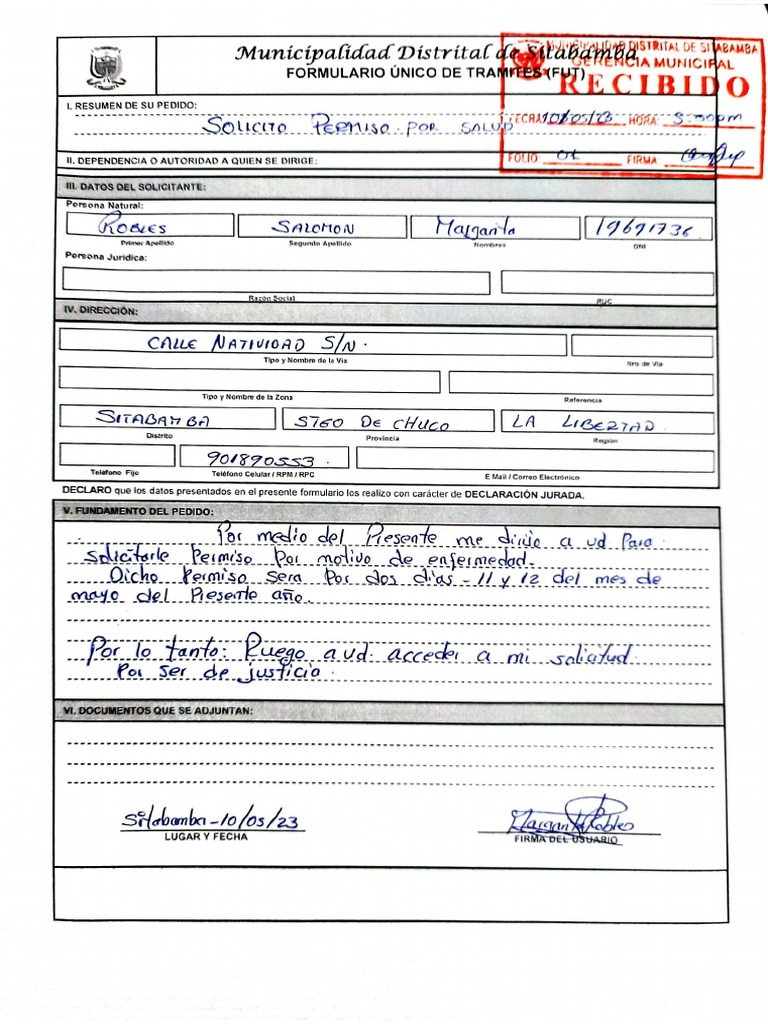 Municipalidad Distrital de Sitabamba
FORMULARIO ÚNICO DE TRAMITES (FUT)
MUNICIPALIDAD DISTRITAL DE SITABAMBA
GERENCIA MUNICIPAL
RECIBIDO
FECHA: 10/05/23 HORA: 3:00pm
FOLIO: 01 FIRMA:
I. RESUMEN DE SU PEDIDO:
SOLICITO PERMISO POR SALUD
II. DEPENDENCIA O AUTORIDAD A QUIEN SE DIRIGE:
III. DATOS DEL SOLICITANTE:
Persona Natural:
ROBLES SALOMON Margarita 19691736
Primer Apellido Segundo Apellido Nombres DNI
Persona Juridica:
Razón Social RUC
IV. DIRECCIÓN:
CALLE NATIVIDAD S/N.
Tipo y Nombre de la Via Nro de Via
Tipo y Nombre de la Zona Referencia
SITABAMBA STGO DE CHUCO LA LIBERTAD
Distrito Provincia Región
901890553.
Teléfono Fijo Teléfono Celular / RPM / RPC E Mail / Correo Electrónico
DECLARO que los datos presentados en el presente formulario los realizo con carácter de DECLARACIÓN JURADA.
V. FUNDAMENTO DEL PEDIDO:
Por medio del Presente me dirijo a ud Para
solicitarle Permiso Por motivo de enfermedad.
Dicho Permiso sera Por dos dias - 11 y 12 del mes de
mayo del Presente año.
Por lo tanto: Ruego a ud. acceder a mi solicitud
Por ser de justicia.
VI. DOCUMENTOS QUE SE ADJUNTAN:
Sitabamba - 10/05/23 Margarita Robles
LUGAR Y FECHA FIRMA DEL USUARIO